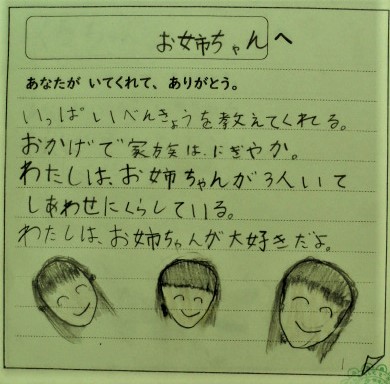 お姉ちゃんへ
あなたが いてくれて、ありがとう。
いっぱいべんきょうを教えてくれる。
おかげで家族は、にぎやか。
わたしは、お姉ちゃんが3人いて
しあわせにくらしている。
わたしは、お姉ちゃんが大好きだよ。